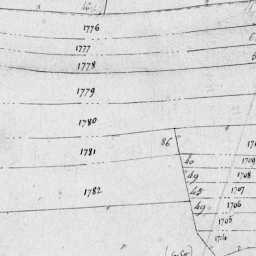 1776
1777
1778
1779
1780
1781
86
40
1709
49
1708
1782
48
1707
49
1706
1705